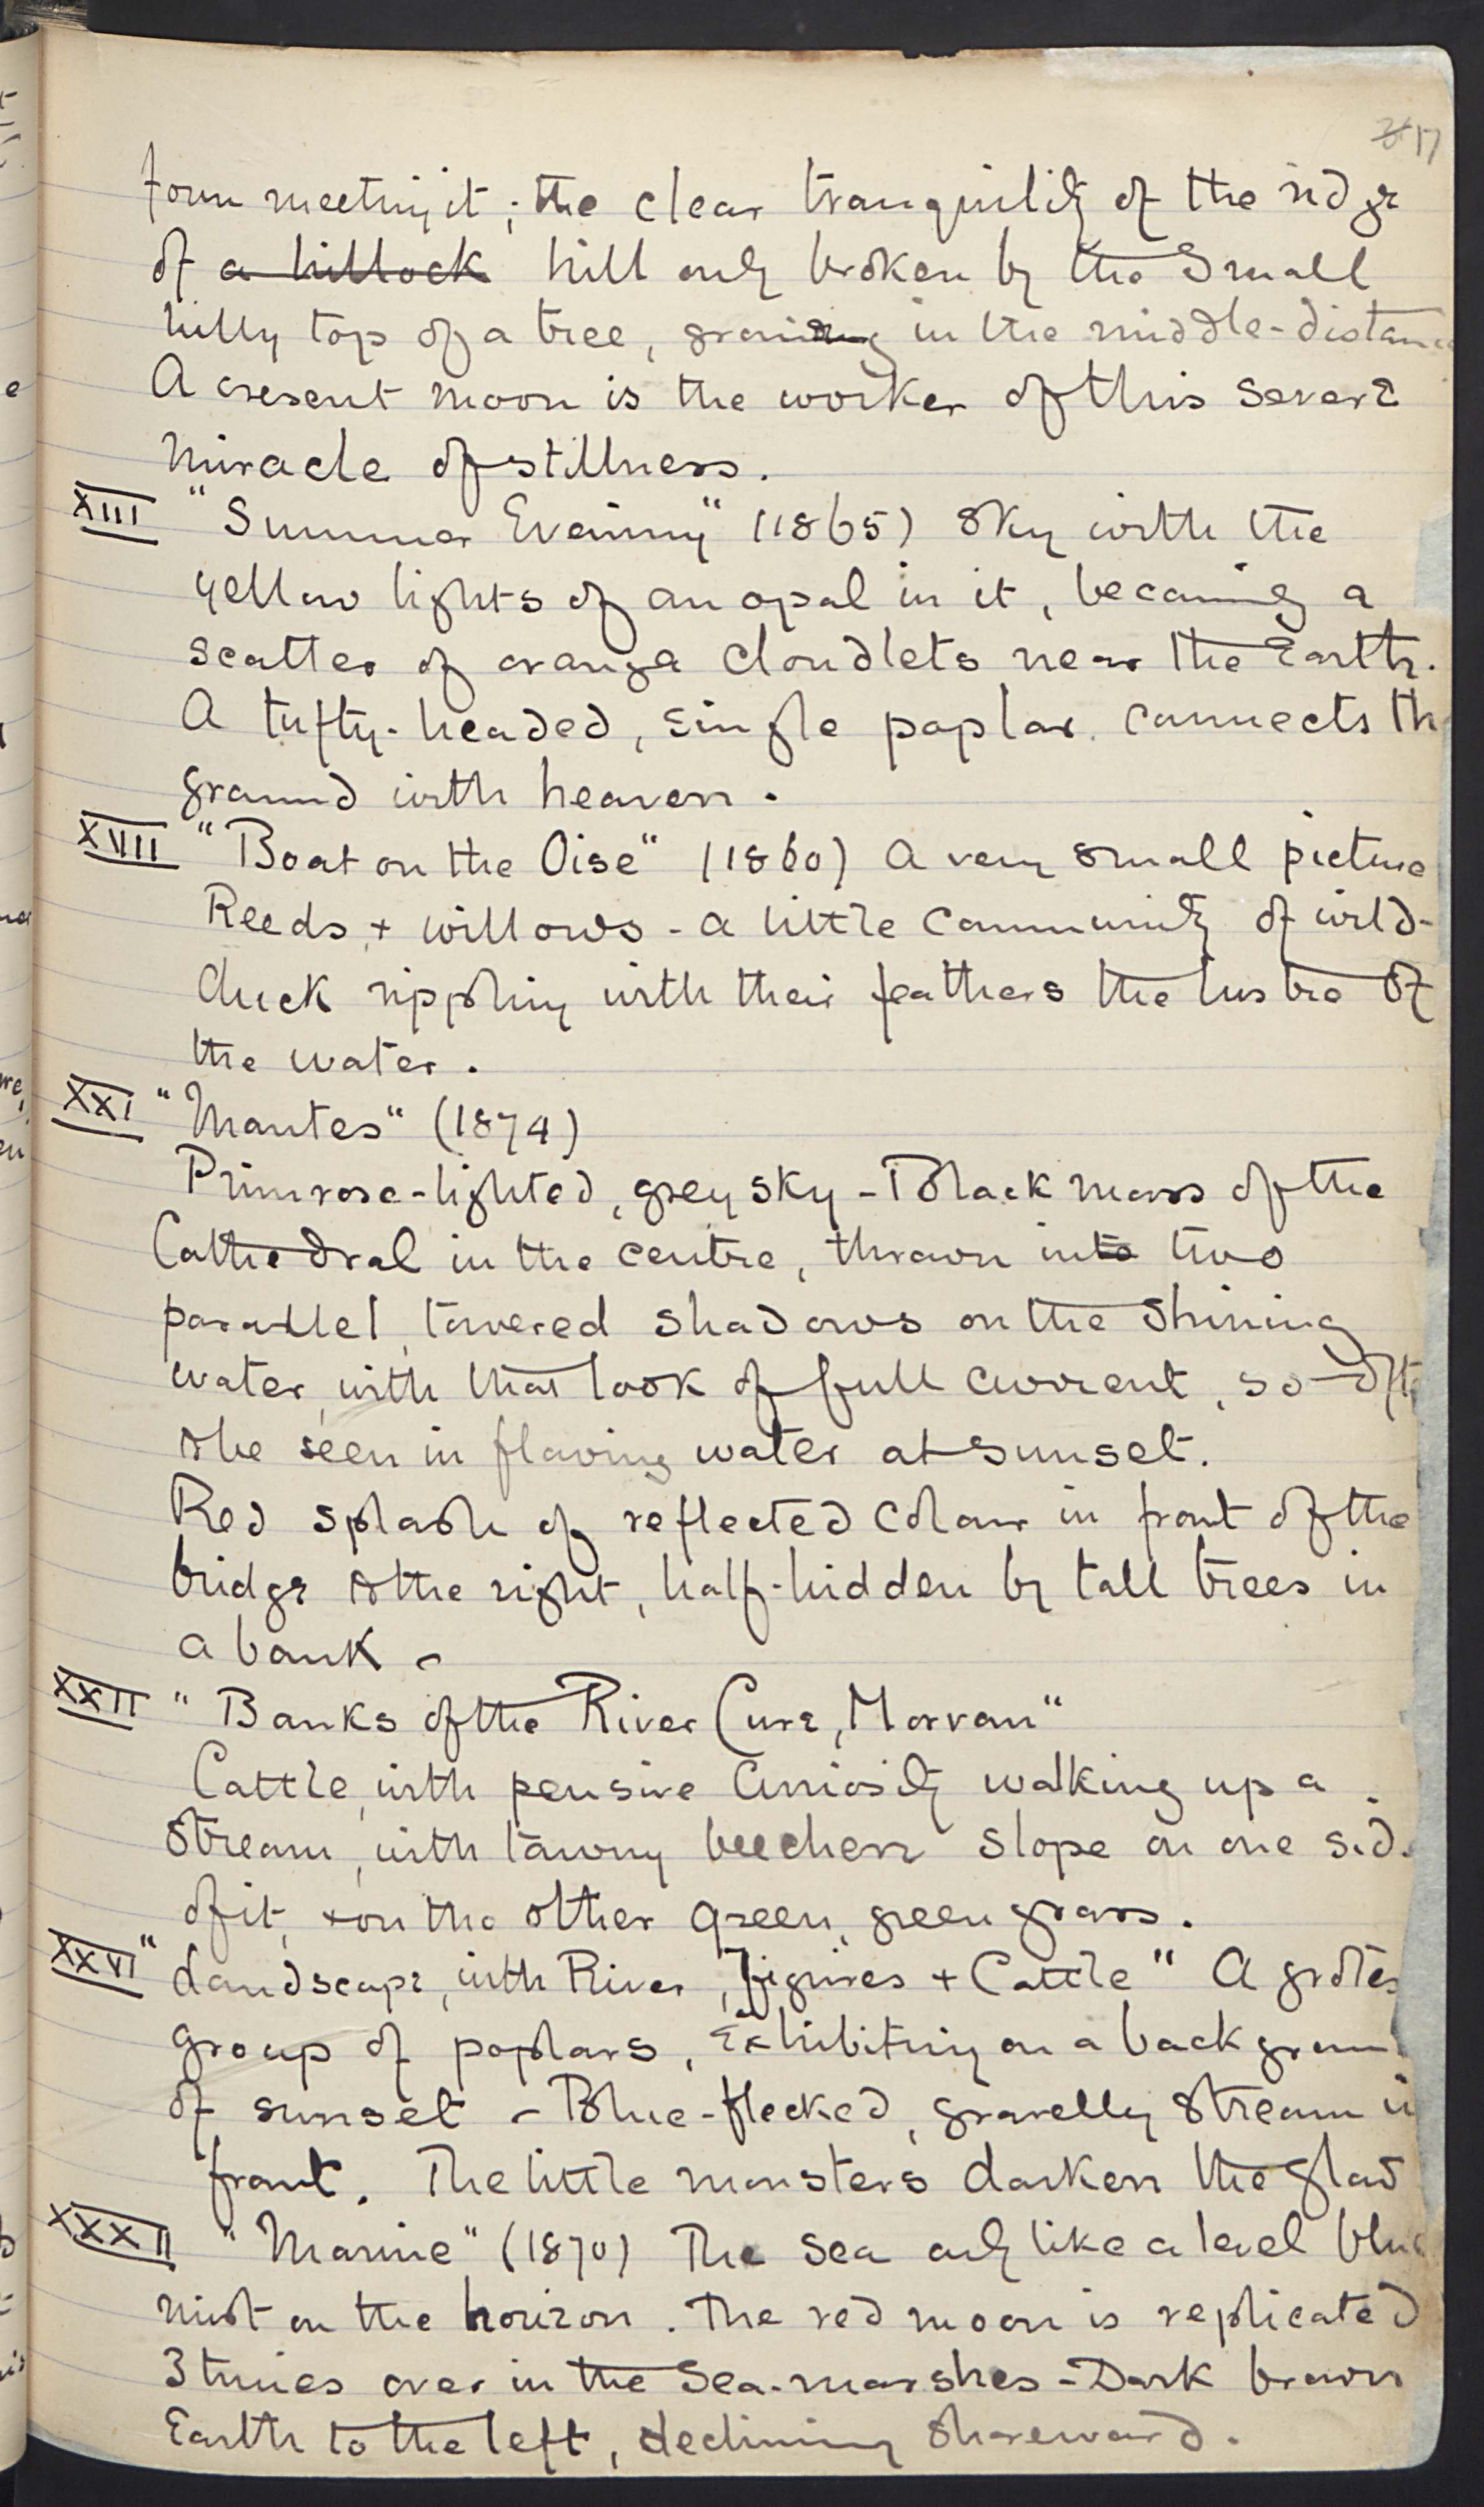 17
form meeting it; the clear tranquility of the ridge
of a hillock hill only broken by the small
hilly top of a tree, growing in the middle-distan
A cresent moon is the worker of this severe
miracle of stillness.
XIII "Summer Evening" (1865) Sky with the
yellow lights of an opal in it, becoming a
scatter of orange cloudlets near the Earth.
A tufty-headed, single poplar connects th
ground with heaven.
XVII "Boat on the Oise" (1860) A very small picture
Reeds + willows - a little community of wild-
duck rippling with their feathers the lustre of
the water.
XXI "Mantes" (1874)
Primrose-lighted, grey sky - Black mass of the
Cathedral in the centre, thrown into two
parallel, towered shadows on the shining
water, with that look of full current, so oft
to be seen in flowing water at sunset.
Red splash of reflected colour in front of the
bridge to the right, half-hidden by tall trees in
a bank -
XXII "Banks of the River Cure, Morvan"
Cattle, with pensive curiosity walking up a
stream, with tawny beechen slope on one sid
of it, + on the other green, green grass.
XXVI "Landscape, with River, Figures + Cattle" A grotes
group of poplars, exhibiting on a backgroun
of sunset - Blue-flecked, gravelly stream i
front. The little monsters darken the glad
XXXII "Marine" (1870) The sea only like a level blue
mist on the horizon. The red moon is replicated
3 times over in the Sea-marshes - Dark brown
Earth to the left, declining shoreward.